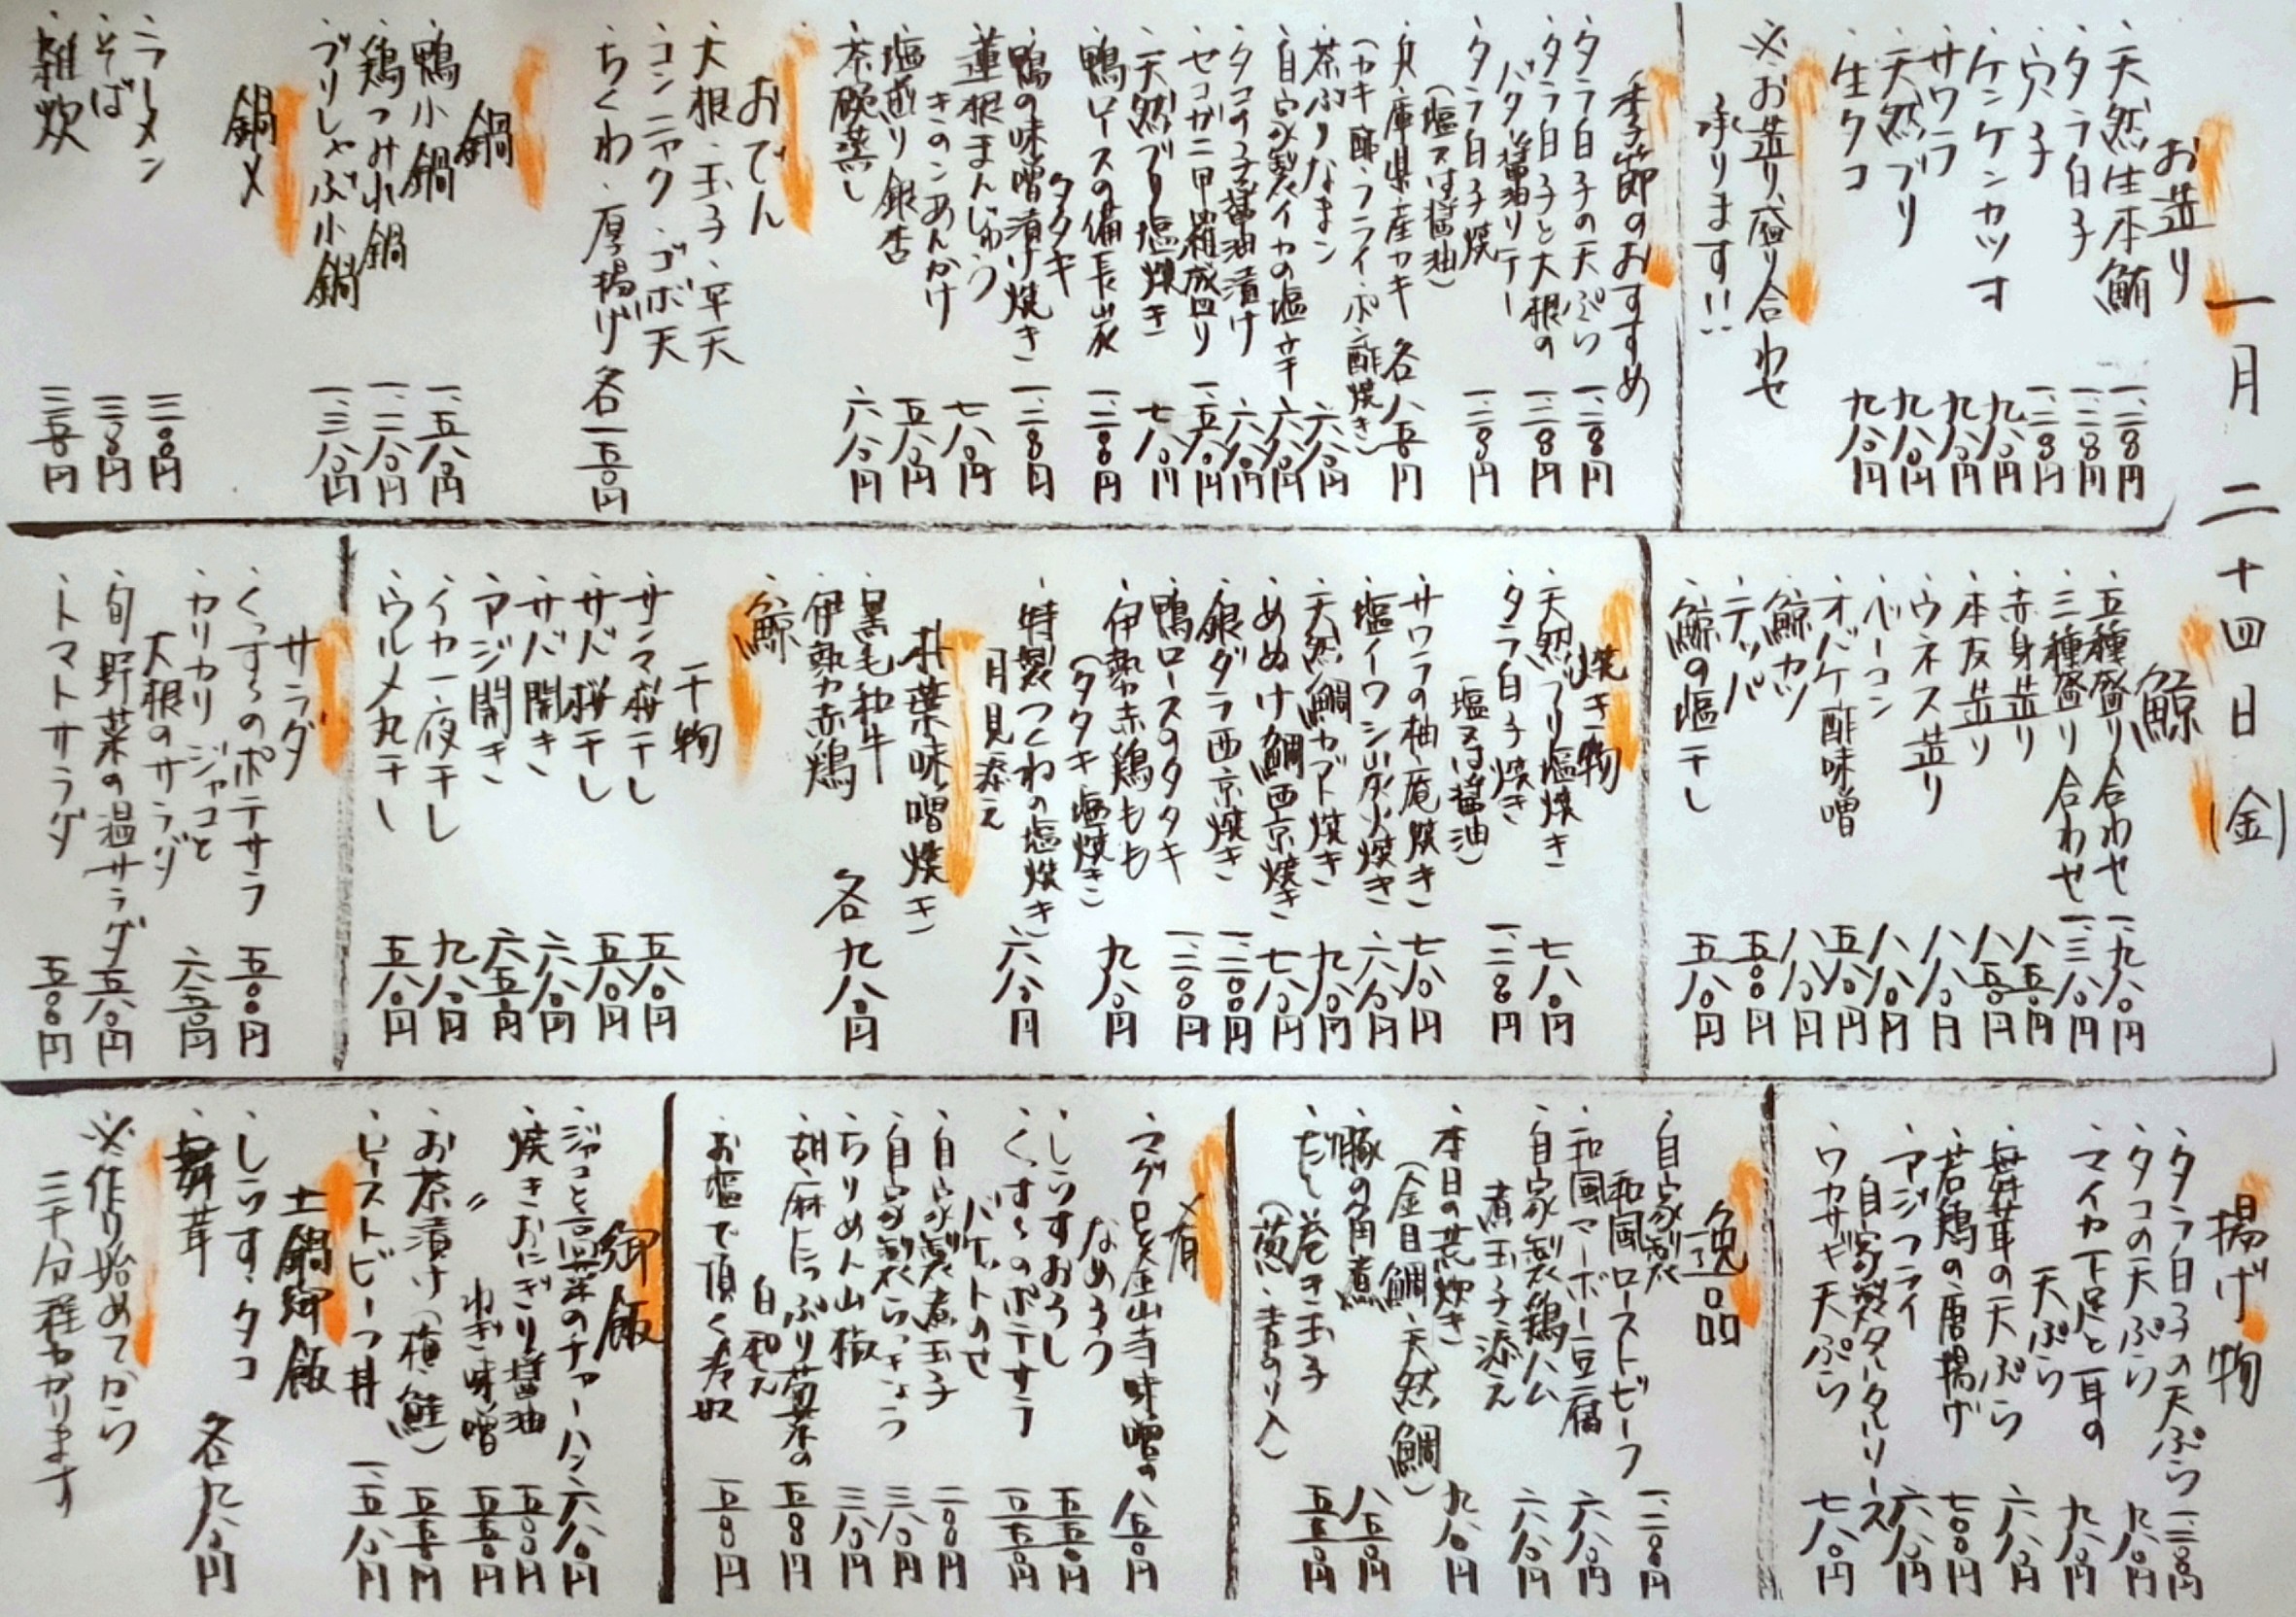 一月二十四日(金)
お造り
・天然生本鮪 一、二〇〇円
・タラ白子 一、二〇〇円
・穴子 一、二〇〇円
・ケンケンカツオ 九八〇円
・サワラ 九八〇円
・天然ブリ 九八〇円
・生タコ 九八〇円
※お造り盛り合わせ
承ります!!
季節のおすすめ
・タラ白子の天ぷら 一、二〇〇円
・タラ白子と大根の
バター醤油ソテー 一、二〇〇円
・タラ白子焼
(塩又は醤油) 一、二〇〇円
・兵庫県産カキ 各八五〇円
(カキ酢・フライ・ポン酢焼き)
・茶ぶりなまこ 六八〇円
・自家製イカの塩辛 六八〇円
・タコの子醤油漬け 六八〇円
・セコガニ甲羅盛り 一、五八〇円
・天然ブリ塩焼き 七八〇円
・鴨ロースの備長炭
タタキ 一、二〇〇円
・鴨の味噌漬け焼き 一、二〇〇円
・蓮根まんじゅう
きのこあんかけ 七八〇円
・塩煎り銀杏 五八〇円
・茶碗蒸し 六八〇円
おでん
・大根・玉子・平天
・コンニャク・ゴボ天
・ちくわ・厚揚げ 各一五〇円
鍋
・鴨小鍋 一、五八〇円
・鶏つみれ小鍋 一、二八〇円
・ブリしゃぶ小鍋 一、三八〇円
鍋〆
・ラーメン 二〇〇円
・そば 三〇〇円
・雑炊 三五〇円
鯨
・五種盛り合わせ 一、九八〇円
・三種盛り合わせ 一、三八〇円
・赤身造り 八五〇円
・本皮造り 八五〇円
・ウネス造り 八八〇円
・ベーコン 八八〇円
・オバケ酢味噌 五八〇円
・鯨カツ 八八〇円
・テッパ 五〇〇円
・鯨の塩干し 五八〇円
焼き物
・天然ブリ塩焼き 七八〇円
・タラ白子焼き
(塩又は醤油) 一、二〇〇円
・サワラの柚庵焼き 七八〇円
・塩イワシ炭火焼き 六八〇円
・天然鯛カブト焼き 九八〇円
・めぬけ鯛西京焼き 七八〇円
・銀ダラ西京焼き 一、二〇〇円
・鴨ロースのタタキ 一、二〇〇円
・伊勢赤鶏もも
(タタキ・塩焼き) 九八〇円
・特製つくねの塩焼き
月見添え 六八〇円
朴葉味噌焼き
・黒毛和牛
・伊勢赤鶏
・鯨 各九八〇円
干物
・サンマ桜干し 五八〇円
・サバ桜干し 五八〇円
・サバ開き 六八〇円
・アジ開き 六五〇円
・イカ一夜干し 九八〇円
・ウルメ丸干し 五八〇円
サラダ
・くっすーのポテサラ 五〇〇円
・カリカリジャコと
大根のサラダ 六五〇円
・旬野菜の温サラダ 五八〇円
・トマトサラダ 五〇〇円
揚げ物
・タラ白子の天ぷら 一、二〇〇円
・タコの天ぷら 九八〇円
・マイカ下足と耳の
天ぷら 九八〇円
・舞茸の天ぷら 六八〇円
・若鶏の唐揚げ 七〇〇円
・アジフライ
自家製タルタルソース 六八〇円
・ワカサギ天ぷら 七八〇円
逸品
・自家製
和風ローストビーフ 一、二〇〇円
・和風マーボー豆腐 六八〇円
・自家製鶏ハム
煮玉子添え 六八〇円
・本日の荒炊き
(金目鯛・天然鯛) 九八〇円
・豚の角煮 八五〇円
・だし巻き玉子
(葱・青のり入) 五五〇円
肴
・マグロと金山寺味噌の
なめろう 八五〇円
・しらすおろし 五五〇円
・くっすーのポテサラ
バゲットのせ 五五〇円
・自家製煮玉子 二〇〇円
・自家製らっきょう 三八〇円
・ちりめん山椒 三八〇円
・胡麻たっぷり菊菜の
白和え 五〇〇円
・お塩で頂く寿奴 五〇〇円
御飯
・ジャコと高菜のチャーハン 六八〇円
・焼きおにぎり醤油 五〇〇円
〃 ねぎ味噌 五五〇円
・お茶漬け(梅・鮭) 五五〇円
・ローストビーフ丼 一、五八〇円
土鍋御飯
・しらす・タコ
・舞茸 各九八〇円
※作り始めてから
三十分程かかります